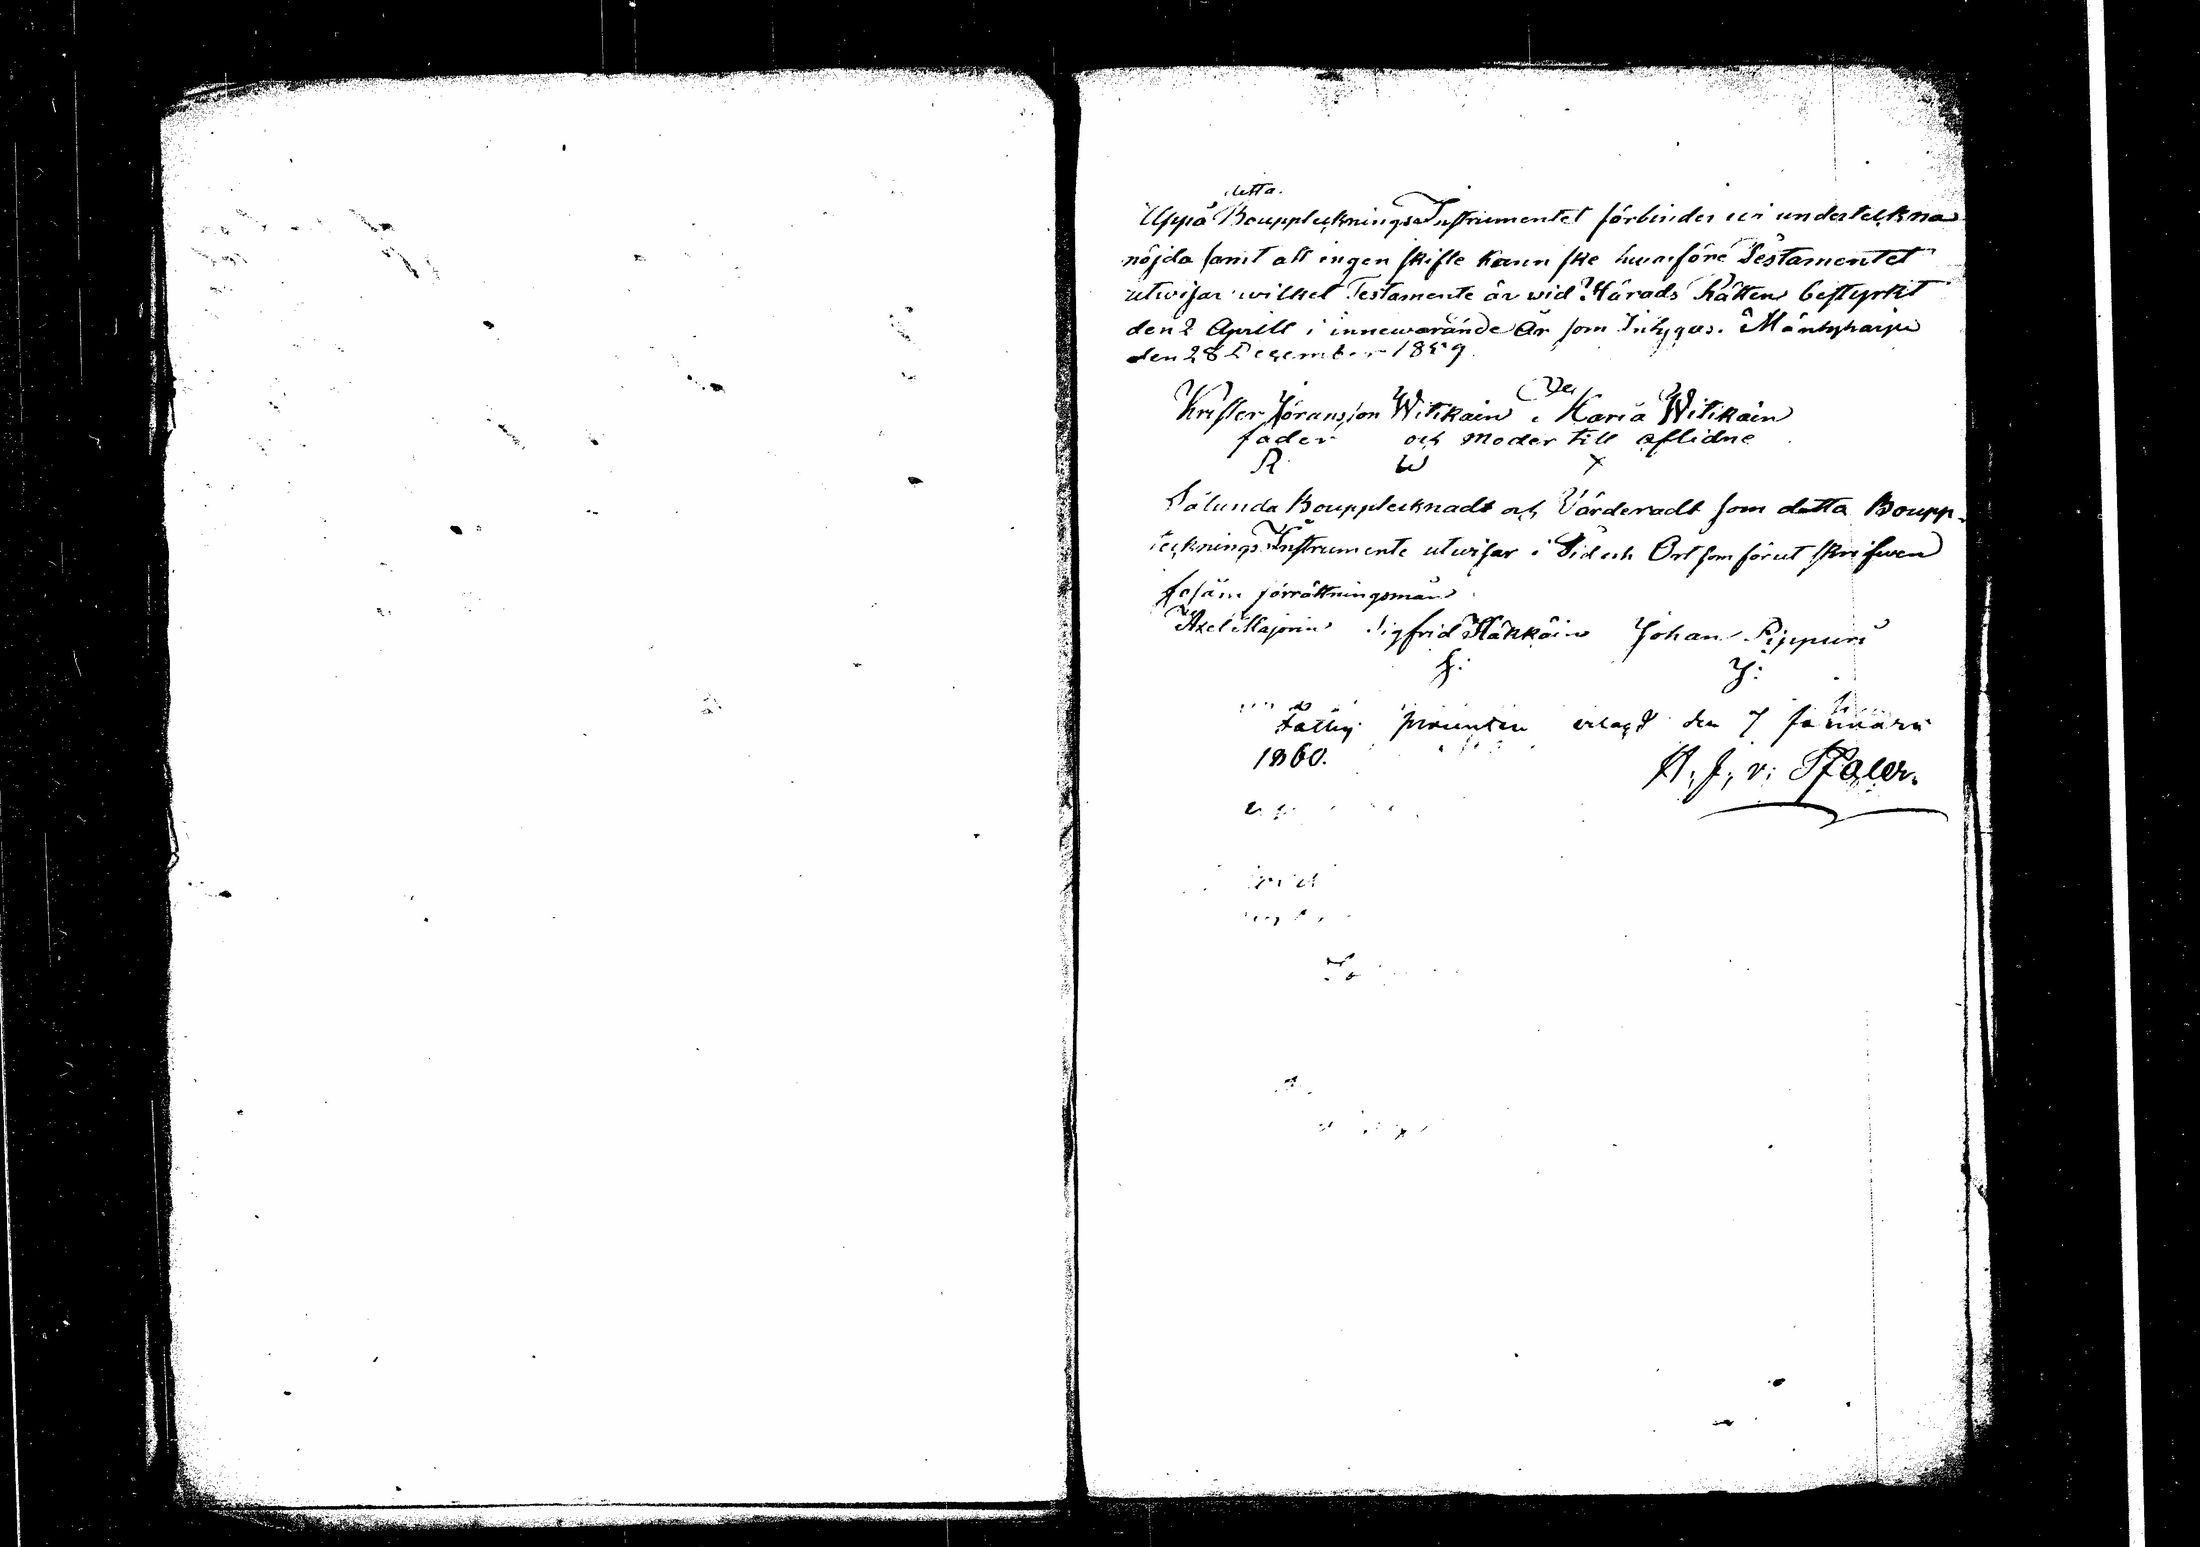 detta.
Uppå Boupptecknings Instrumentet förbinder wi underteckna
nöjda samt att ingen skifte kann ske huruföre Testamentet
utwisar wilket Testamente är wid Härads Rätten bestyrkt
den 2 Aprill i innewarände År som Intygas. Mäntyharju
den 28 Decemb 1859
Krister Jöransson Witikain Maria Witikain
fader och moder till aflidne
R W X
Sålunda Boupptecknadt och Värderadt som datta Boupp-
tecknings Instrumente utwisar i Tid och Ort som förut skrifwen
förrättningsmän
Axel Majorin Sigfrid Häkkäin Johan Pippuri
J:
Fattig procenten erlagd den 7 Januari
1860.
A. J. v: Pfaler.